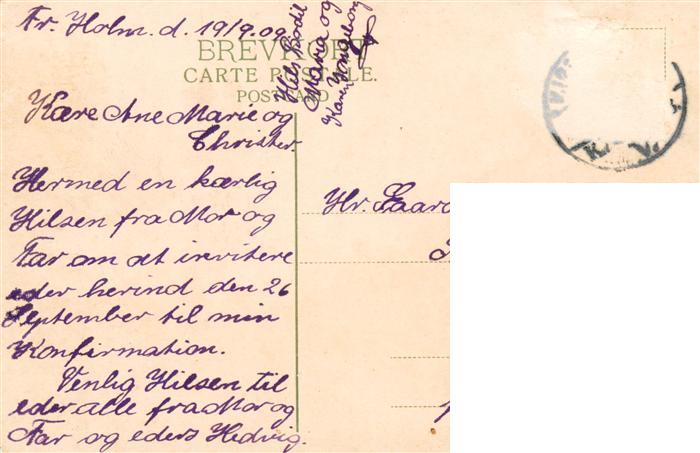 Fr. Holm. d. 19/9.09.
Hils Bodil
Maria og
Karen
BREVKORT
CARTE POSTALE.
POSTCARD
Kære Ane Marie og
Christen.
Hermed en kærlig
Hilsen fra Mor og
Far om at invitere
eder herind den 26
September til min
Konfirmation.
Venlig Hilsen til
eder alle fra Mor og
Far og eders Hedvig.
Hr.